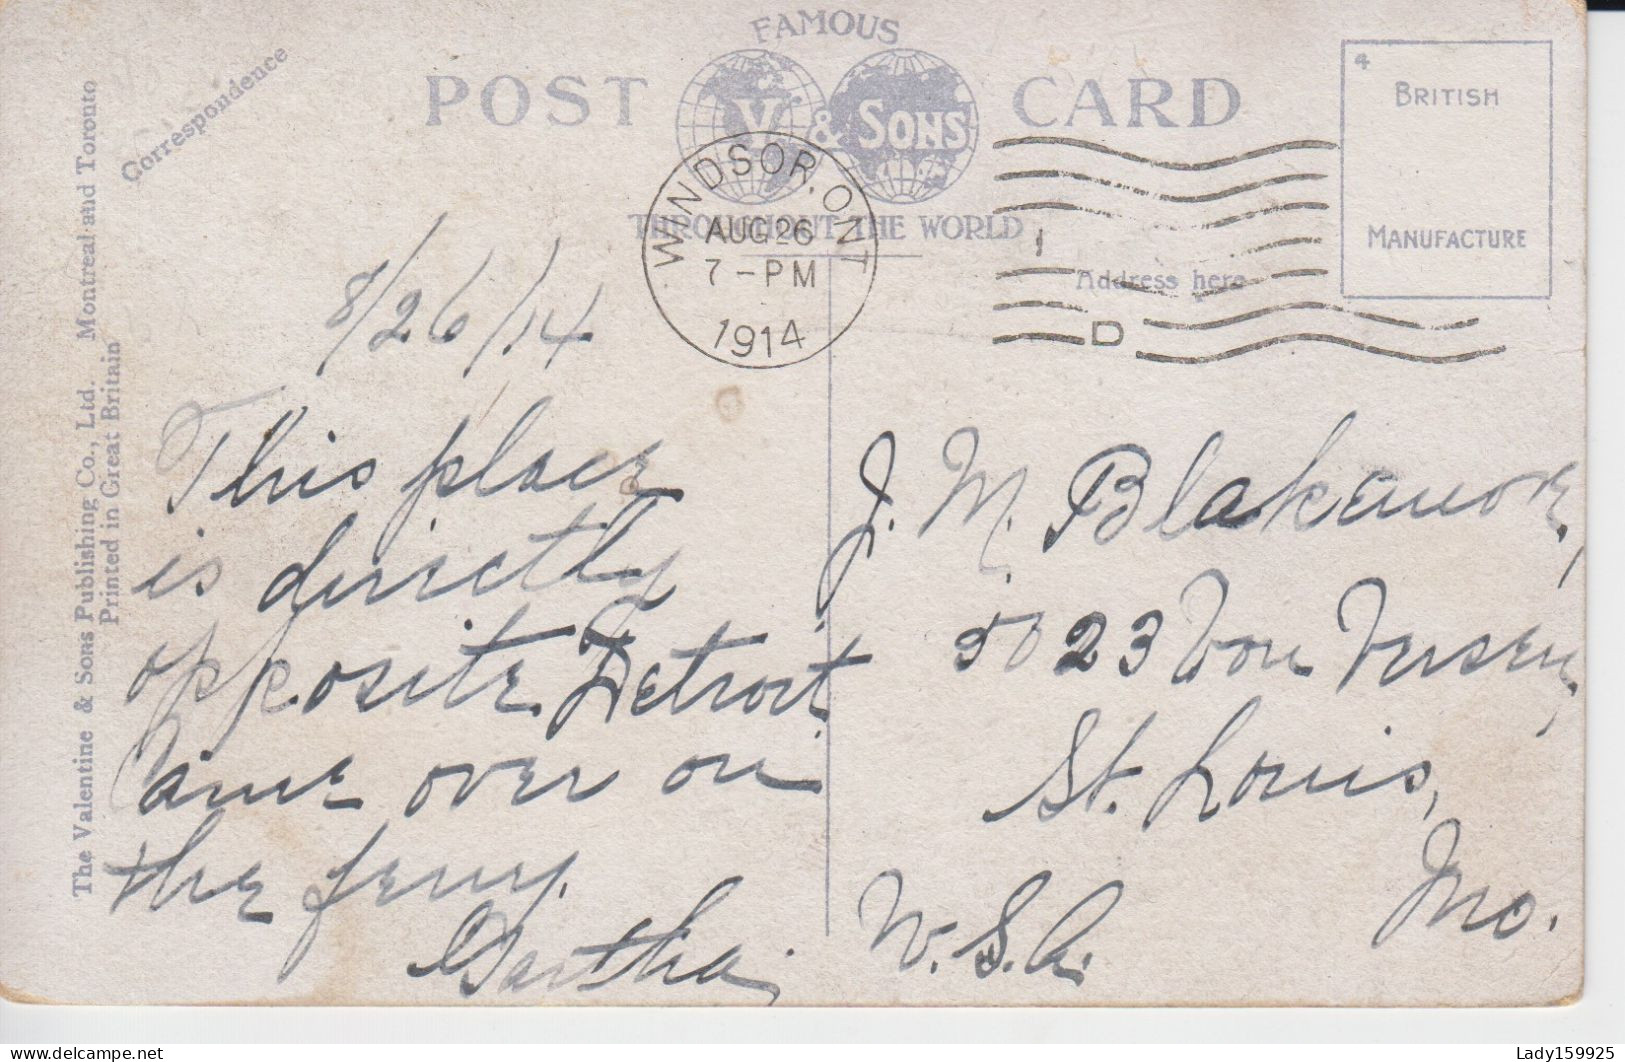 FAMOUS
POST V & SONS CARD
THROUGHOUT THE WORLD
4
BRITISH
MANUFACTURE
Correspondence
Address here
The Valentine & Sons Publishing Co., Ltd. Montreal and Toronto
Printed in Great Britain
WINDSOR, ONT
AUG 26
7 - PM
1914
1
D
8/26/14
This place
is directly
opposite Detroit
Came over on
the ferry.
J. M. Blakemore,
5023 Von Versen,
St. Louis,
Mo.
U.S.A.
delcampe.net
Lady159925